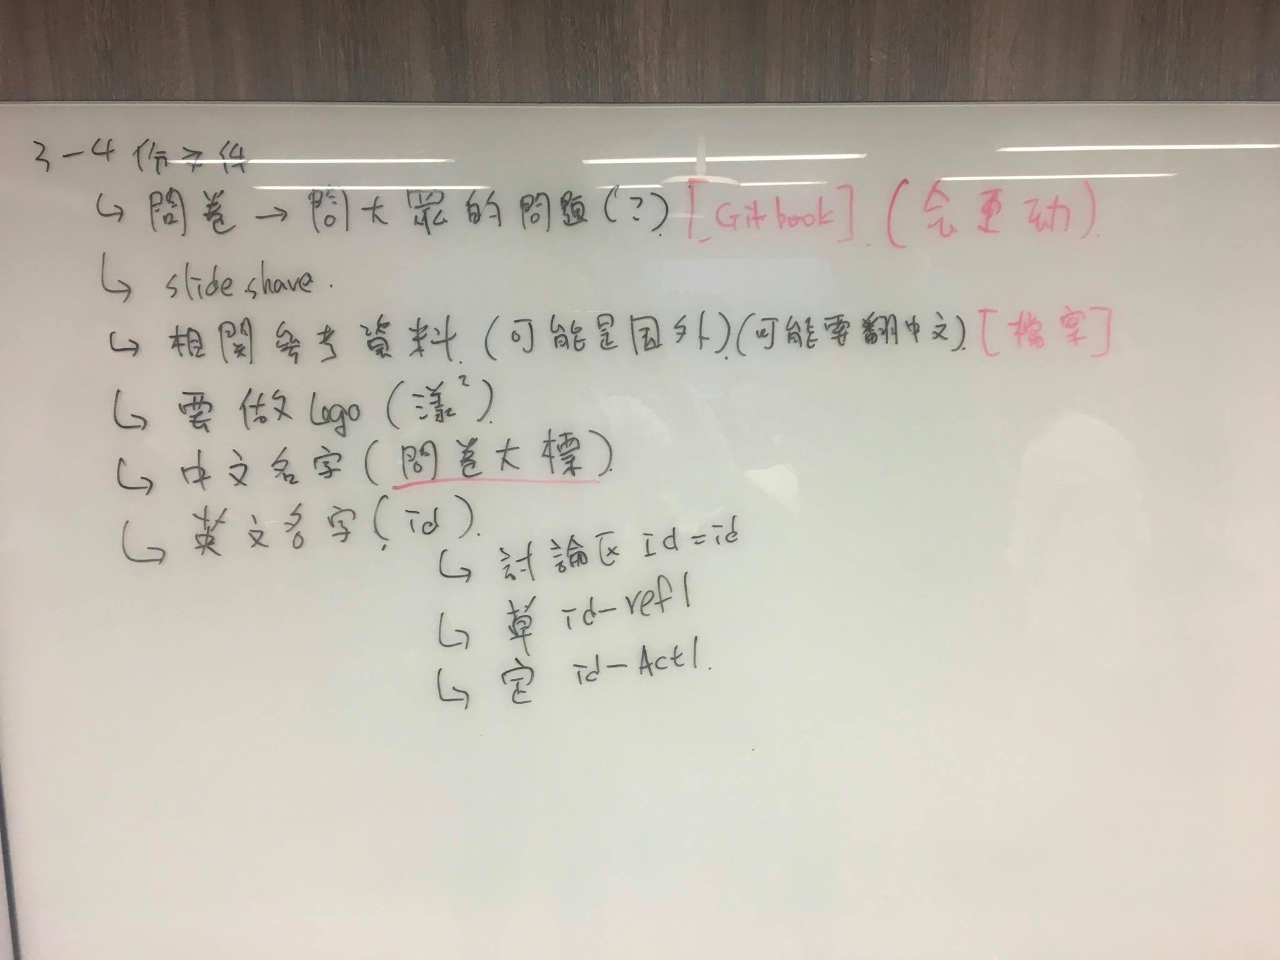 3-4 份文件
↳ 問卷 → 問大眾的問題(?) [Gitbook] (会更动)
↳ slideshare.
↳ 相關參考資料 (可能是国外)(可能要翻中文) [檔案]
↳ 要做 Logo (漾²)
↳ 中文名字 (問卷大標)
↳ 英文名字 (id)
↳ 討論区 id = id
↳ 草 id-ref1
↳ 定 id-Act1.